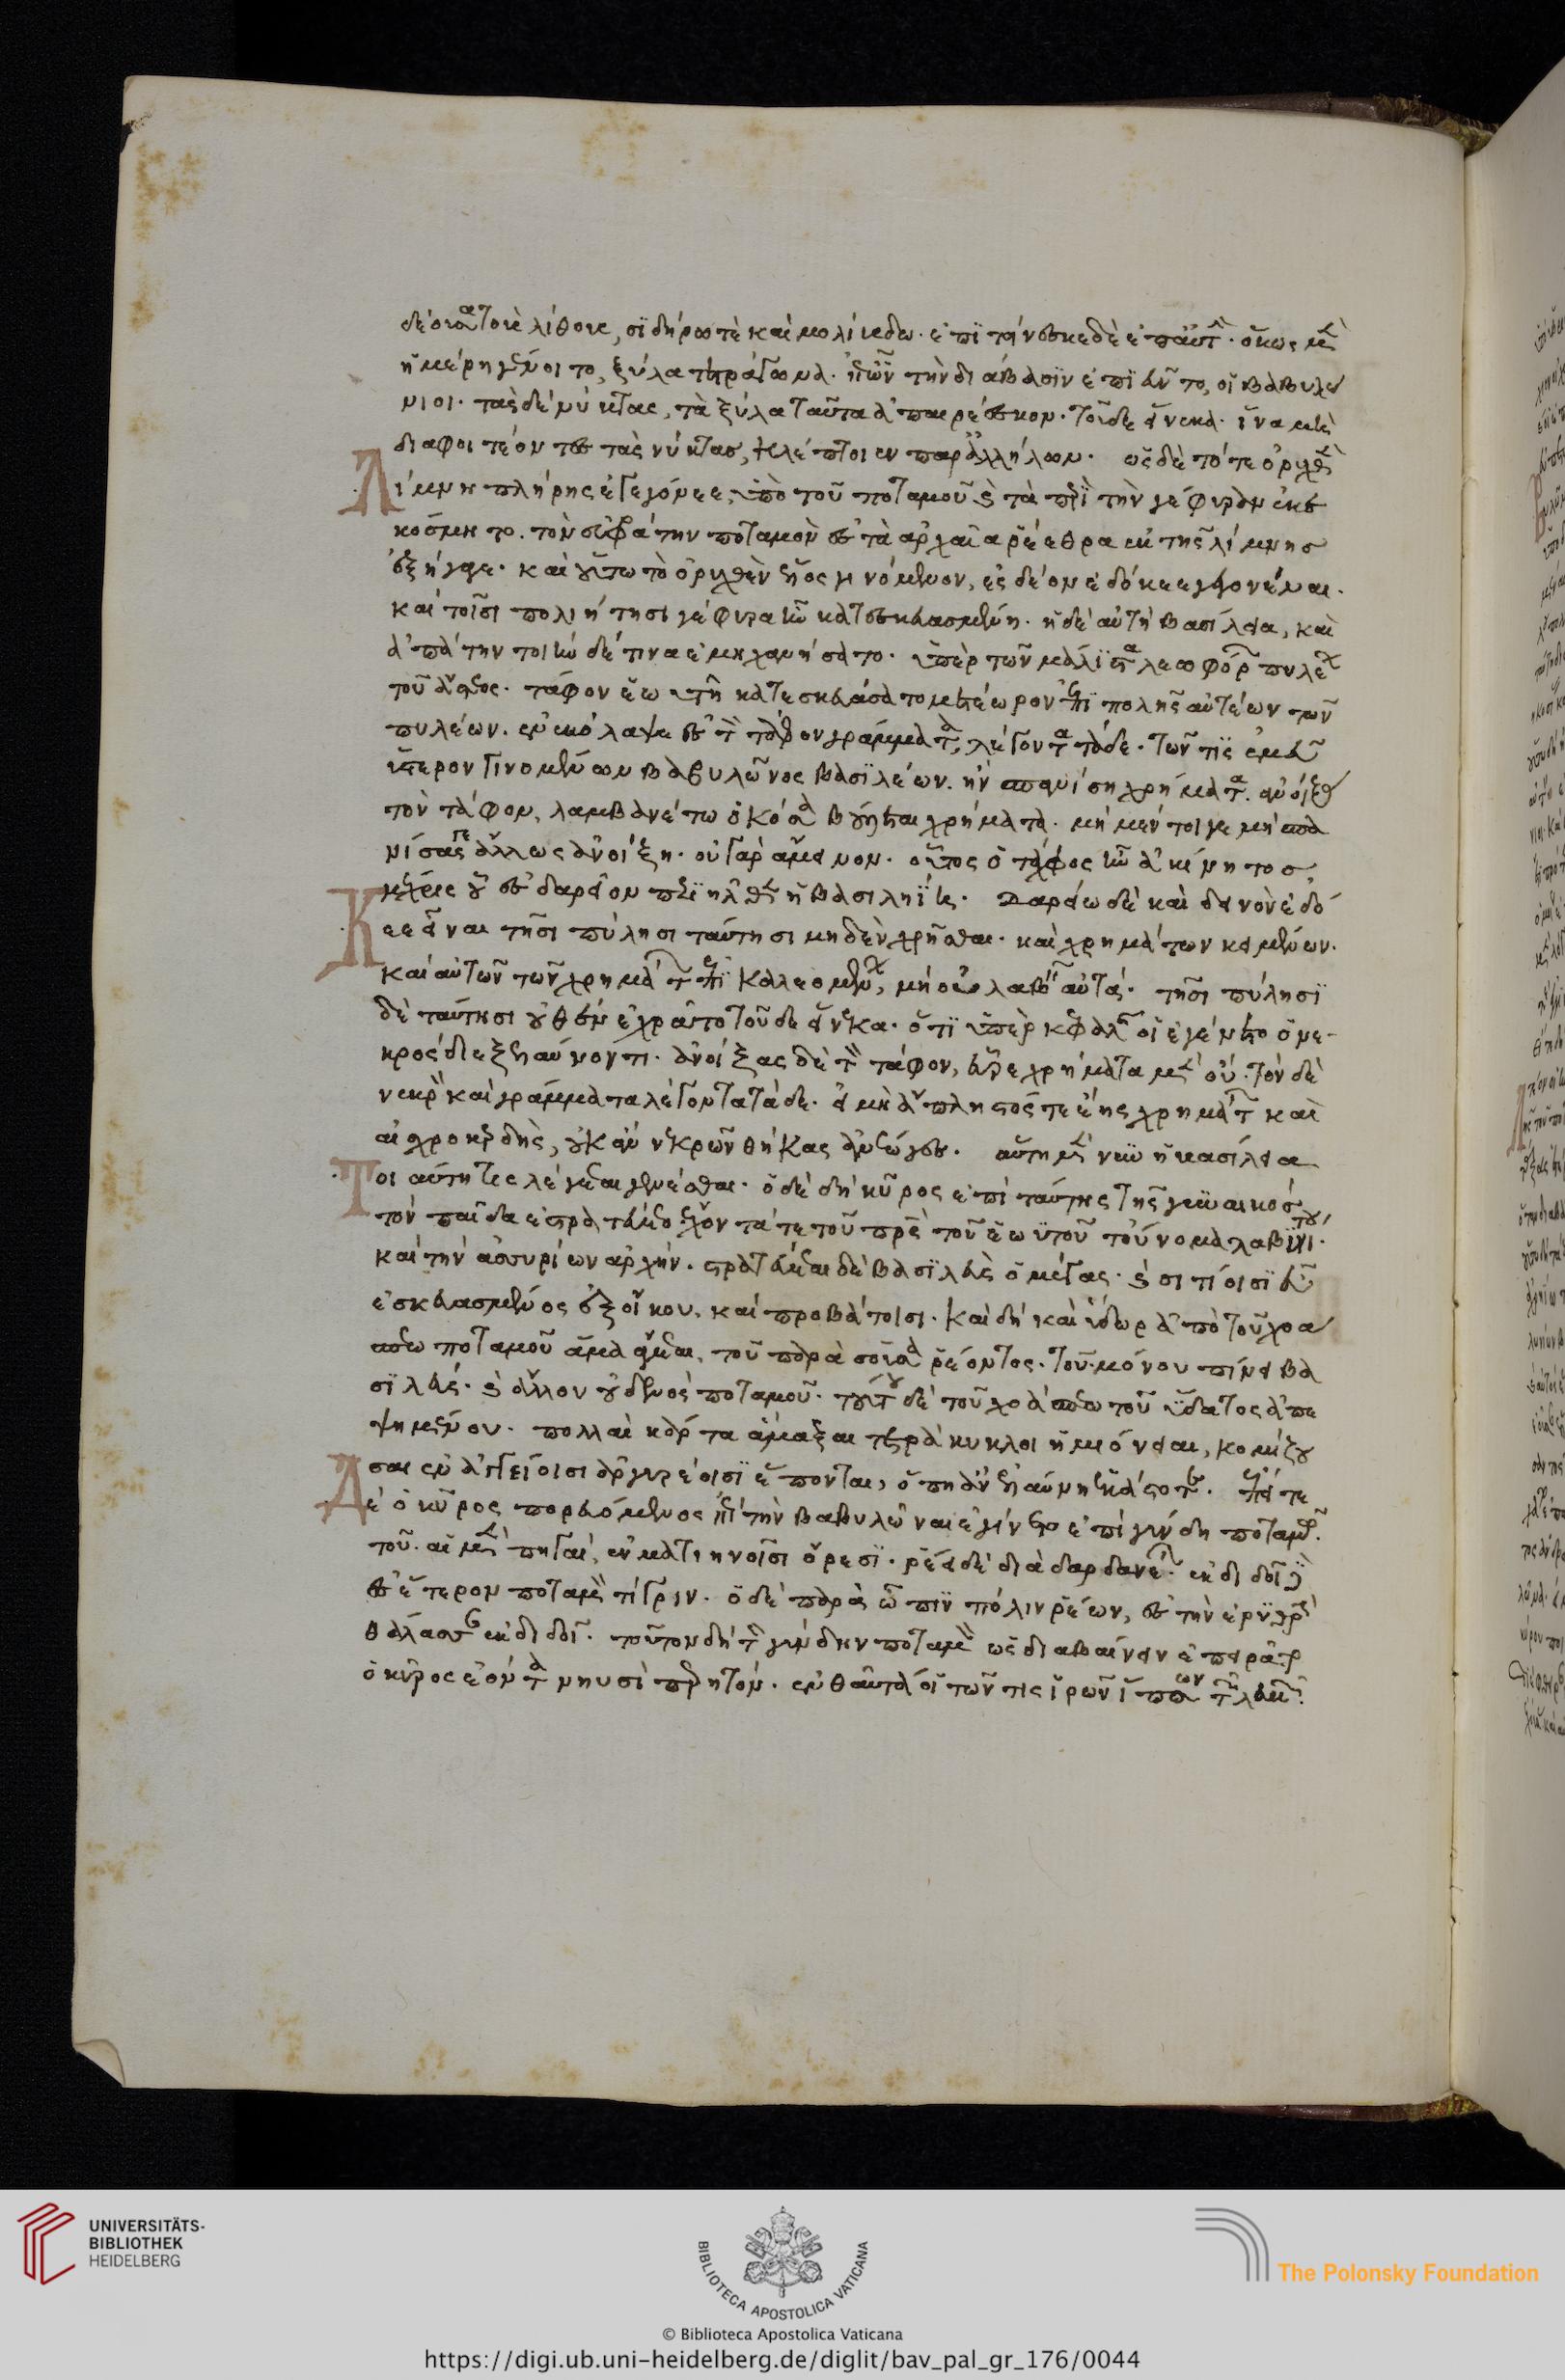 δέουσα τοὺς λίθους, σιδήρω τὲ καὶ μολίβδω. ἐπιτείνεσκε δὲ ἐπαυτὴν. ὅκως μὲν
ἡμέρη γένοιτο, ξύλα τετράγωνα. ἐπ ὧν τὴν διάβασιν ἐπιεῦντο, οἱ βαβυλώ
νιοι. τὰς δὲ νύκτας, τὰ ξύλα ταῦτα ἀπαιρέεσκον. τοῦδε εἵνεκα. ἵνα μὴ
διαφοιτέοντες τὰς νύκτας, κλέπτοιεν παρ ἀλλήλων. ὡς δὲ τό τε ὀρυχθὲν
Λίμνη πλήρης ἐγεγόνεε, ὑπὸ τοῦ ποταμοῦ καὶ τὰ περὶ τὴν γέφυραν ἐκε
κόσμητο. τὸν εὐφράτην ποταμὸν ἐς τὰ ἀρχαῖα ῥέεθρα ἐκ τῆς λίμνης
ἐξήγαγε. καὶ οὕτω τὸ ὀρυχθὲν ἕλος γινόμενον, ἐς δέον ἐδόκεε γεγονέναι.
καὶ τοῖσι πολιήτησι γέφυρα ἦν κατεσκευασμένη. ἡ δὲ αὐτὴ βασίλεια, καὶ
ἀπάτην τοιήν δέ τινα ἐμηχανήσατο. ὑπὲρ τῶν μάλιστα λεωφόρων πυλέων
τοῦ ἄστεος. τάφον ἑωυτῆ κατεσκευάσατο μετέωρον ἐπι πολῆς αὐτέων τῶν
πυλέων. ἐνεκόλαψε ἐς τὸν τάφον γράμματα, λέγοντα τάδε. τῶν τις ἐμεῦ
ὕστερον γινομένων βαβυλῶνος βασιλέων. ἢν σπανίση χρημάτων. ἀνοίξας
τὸν τάφον, λαμβανέτω ὁκόσα βούλεται χρήματα. μὴ μέν τοι γε μὴ σπα
νίσας γε ἄλλως ἀνοίξη. οὐ γὰρ ἄμεινον. οὗτος ὁ τάφος ἦν ἀκίνητος
μέχρις οὗ ἐς δαρεῖον περιῆλθεν ἡ βασιληίη. Δαρείω δὲ καὶ δεινὸν ἐδό
Κεε εἶναι τῆσι πύλησι ταύτησι μηδὲν χρῆσθαι. καὶ χρημάτων κειμένων.
καὶ αὐτῶν τῶν χρημάτων ἐπικαλεομένων, μὴ οὐ λαβεῖν αὐτά. τῆσι πύλησι
δὲ ταύτησι οὐθὲν ἐχρᾶτο τοῦδε εἵνεκα. ὅτι ὑπὲρ κεφαλῆς οἱ ἐγένετο ὁ νε-
κρὸς διεξελαύνοντι. ἀνοίξας δὲ τὸν τάφον, εὗρε χρήματα μὲν οὔ. τὸν δὲ
νεκρὸν καὶ γράμματα λέγοντα τάδε. εἰ μὴ ἄπληστός τε ἔης χρημάτων καὶ
αἰσχροκερδὴς, οὐκ ἂν νεκρῶν θήκας ἀνέωγες. αὕτη μέν νυν ἡ βασίλεια
Τοιαύτη τις λέγεται γενέσθαι. ὁ δὲ δὴ κῦρος ἐπὶ ταύτης τῆς γυναικὸς
τὸν παῖδα ἐστρατεύετο. ἔχοντά τε τοῦ πατρὸς τοῦ ἑωυτοῦ τοὔνομα λαβυνήτου.
καὶ τὴν ἀσσυρίων ἀρχήν. στρατεύεται δὲ βασιλεὺς ὁ μέγας. καὶ σιτίοισι εὖ
ἐσκευασμένος ἐξ οἴκου. καὶ προβάτοισι. καὶ δὴ καὶ ὕδωρ ἀπὸ τοῦ χοά
σπεω ποταμοῦ ἅμα ἄγεται, τοῦ παρὰ σοῦσα ῥέοντος. τοῦ μόνου πίνει βα
σιλεύς. καὶ ἄλλου οὐδενὸς ποταμοῦ. τούτου δὲ τοῦ χοάσπεω τοῦ ὕδατος ἀπε
ψημένου. πολλαὶ κάρτα ἅμαξαι τετράκυκλοι ἡμιόνειαι, κομίζου
σαι ἐν ἀγγείοισι ἀργυρέοισι ἕπονται, ὅπη ἂν ἐλαύνη ἑκάστοτε. ἐπεί τε
Δὲ ὁ κῦρος πορευόμενος ἐπὶ τὴν βαβυλῶνα ἐγίνετο ἐπὶ γύνδη ποταμῶ.
τοῦ. αἱ μὲν πηγαὶ, ἐν ματιηνοῖσι ὄρεσι. ῥέει δὲ διὰ δαρδανέων. ἐκδιδοῖ δὲ
ἐς ἕτερον ποταμὸν τίγριν. ὁ δὲ παρὰ ὦπιν πόλιν ῥέων, ἐς τὴν ἐρυθρὴν
θάλασσαν ἐκδιδοῖ. τοῦτον δὴ τὸν γύνδην ποταμὸν ὡς διαβαίνειν ἐπειρᾶτο
ὁ κῦρος ἐόντα νηυσὶ περητόν. ἐνθαῦτά οἱ τῶν τις ἱρῶν ἵππων τῶν λευκῶν.
UNIVERSITÄTS-
BIBLIOTHEK
HEIDELBERG
BIBLIOTECA APOSTOLICA VATICANA
The Polonsky Foundation
© Biblioteca Apostolica Vaticana
https://digi.ub.uni-heidelberg.de/diglit/bav_pal_gr_176/0044